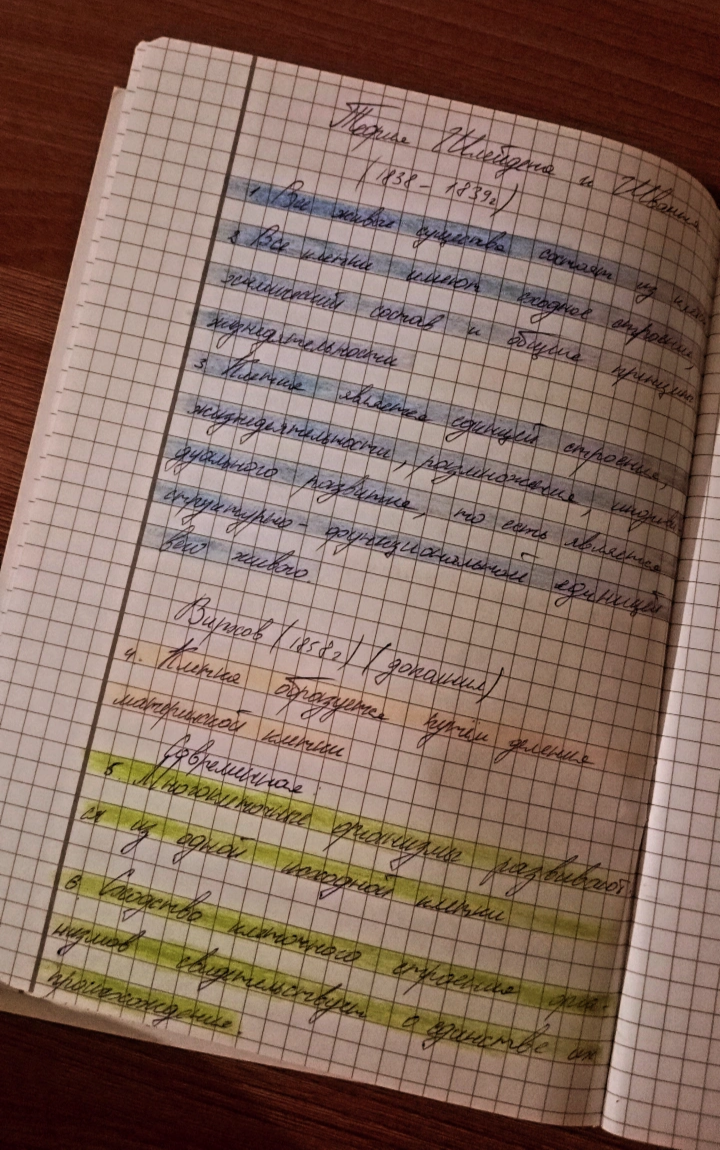 Теория Шлейдена и Шванна
(1838 – 1839г)
1 Все живые существа состоят из клет
2 Все клетки имеют сходное строение,
химический состав и общие принципы
жизнедеятельности
3. Клетка является единицей строения,
жизнедеятельности, размножения, индиви
дуального развития, то есть является
структурно-функциональной единицей
всего живого.
Вирхов (1858г) (дополнил)
4. Клетка образуется путём деления
материнской клетки
Современная:
5 Многоклеточные организмы развивают
ся из одной исходной клетки
6 Сходство клеточного строения орга-
низмов свидетельствует о единстве их
происхождения.